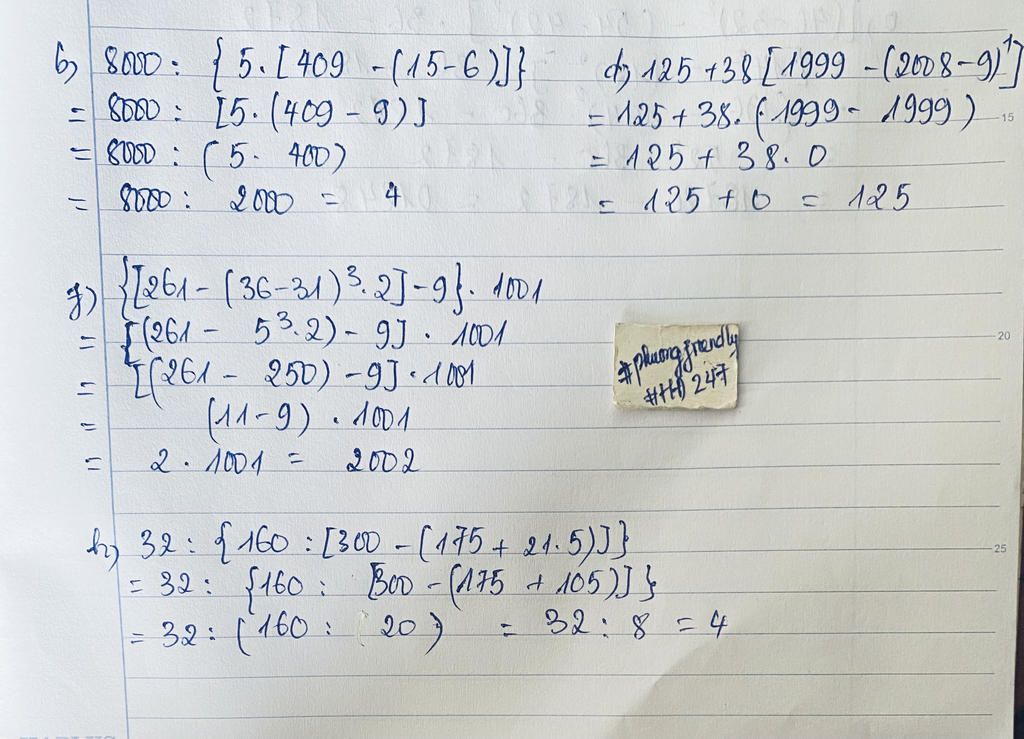 b) 8000 : { 5 . [ 409 - (15 - 6) ] }
= 8000 : [ 5 . (409 - 9) ]
= 8000 : ( 5 . 400 )
= 8000 : 2000 = 4
d) 125 + 38 [ 1999 - (2008 - 9)¹ ]
= 125 + 38 . (1999 - 1999)
= 125 + 38 . 0
= 125 + 0 = 125
g) { [ 261 - (36 - 31)³ . 2 ] - 9 } . 1001
= [ (261 - 5³ . 2) - 9 ] . 1001
= [ (261 - 250) - 9 ] . 1001
= (11 - 9) . 1001
= 2 . 1001 = 2002
#phuongfriendly
247
h) 32 : { 160 : [ 300 - (175 + 21 . 5) ] }
= 32 : { 160 : [ 300 - (175 + 105) ] }
= 32 : ( 160 : 20 ) = 32 : 8 = 4
15
20
25